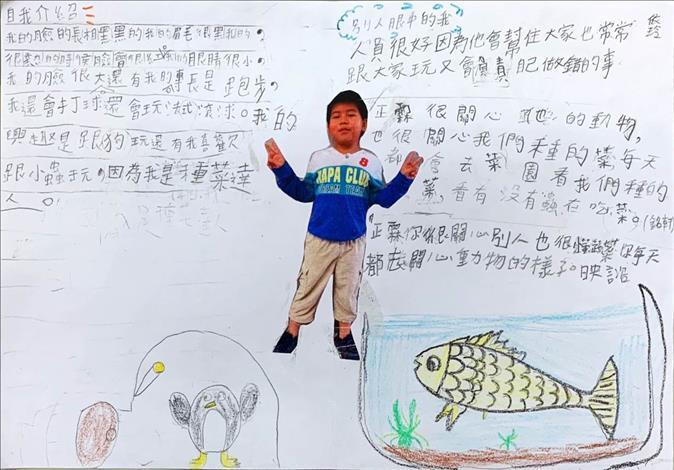 自我介紹
我的臉的長相黑黑的我的眉毛很黑我的
我的臉很大還有我的專長是跑步。
我還會打球還會玩法式滾球。我的
興趣是跟狗玩還有我喜歡
跟小蟲玩。因為我是種菜達
人。
別人眼中的我
人員很好因為他會幫住大家也常常
跟大家玩又會負責自己做錯的事
正霖很關心其他的動物,
也很關心我們種的菜每天
都會去菜園看我們種的
菜,看有沒有蟲在吃菜。
正霖你很關心別人也很懂蔬菜每天
都去關心動物的樣子。映諠
8
NAPA CLUB
TEAM